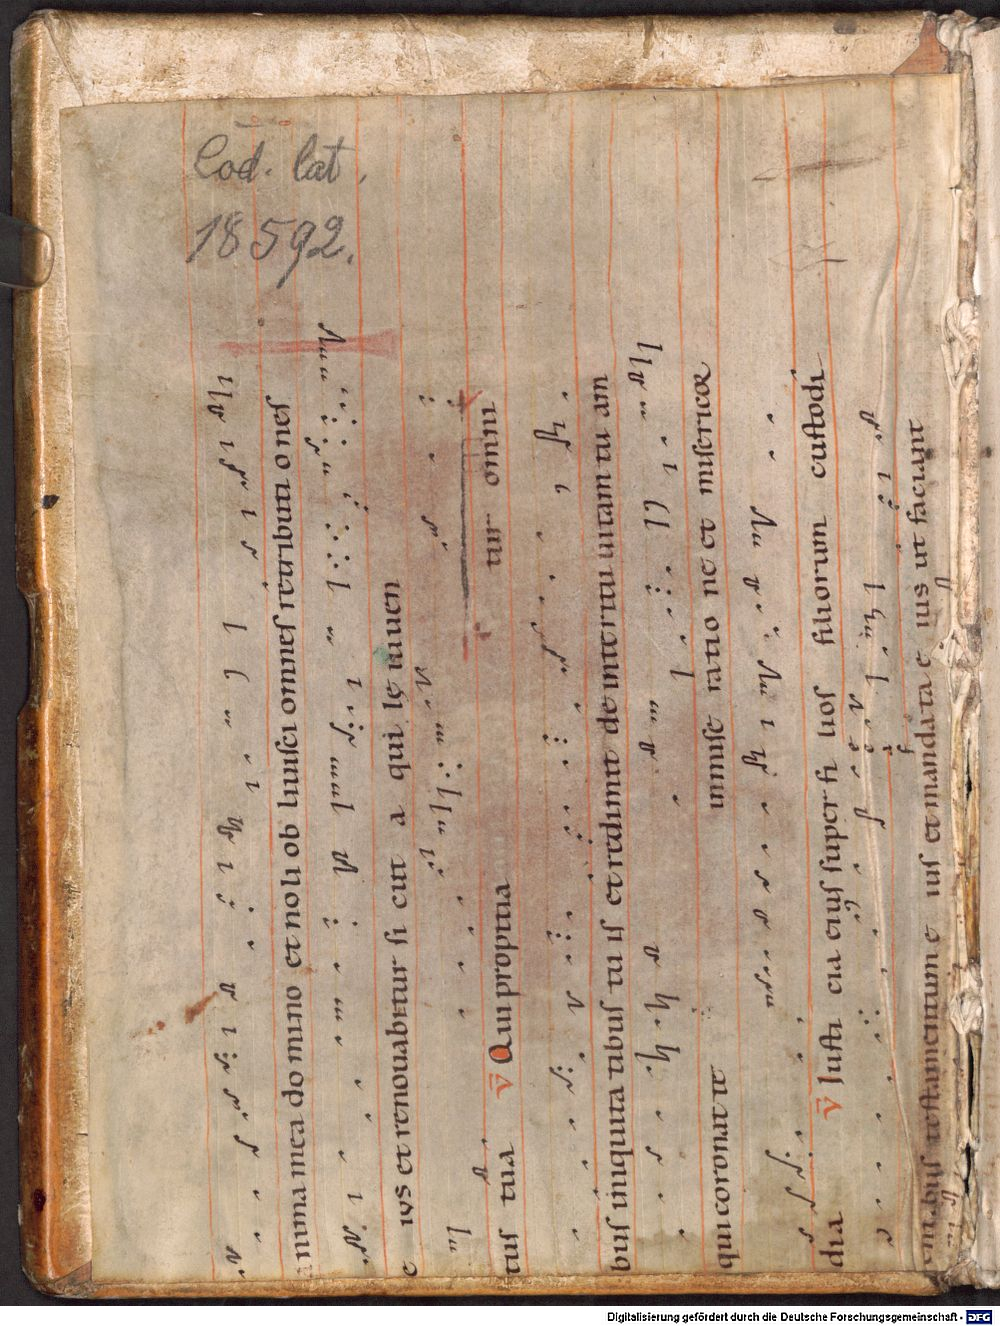 Cod. lat.
18592.
anima mea domino et noli obliuisci omnes retributiones
eius et renouabitur sicut aquilę iuuen
tus tua ℣ Qui propitiatur omni
bus iniquitatibus tuis et redimit de interitu uitam tuam
qui coronat te in miseratione et misericor
dia ℣ Iusticia eius super filios filiorum custodi
entibus testamentum eius et mandata eius ut faciant
Digitalisierung gefördert durch die Deutsche Forschungsgemeinschaft - DFG